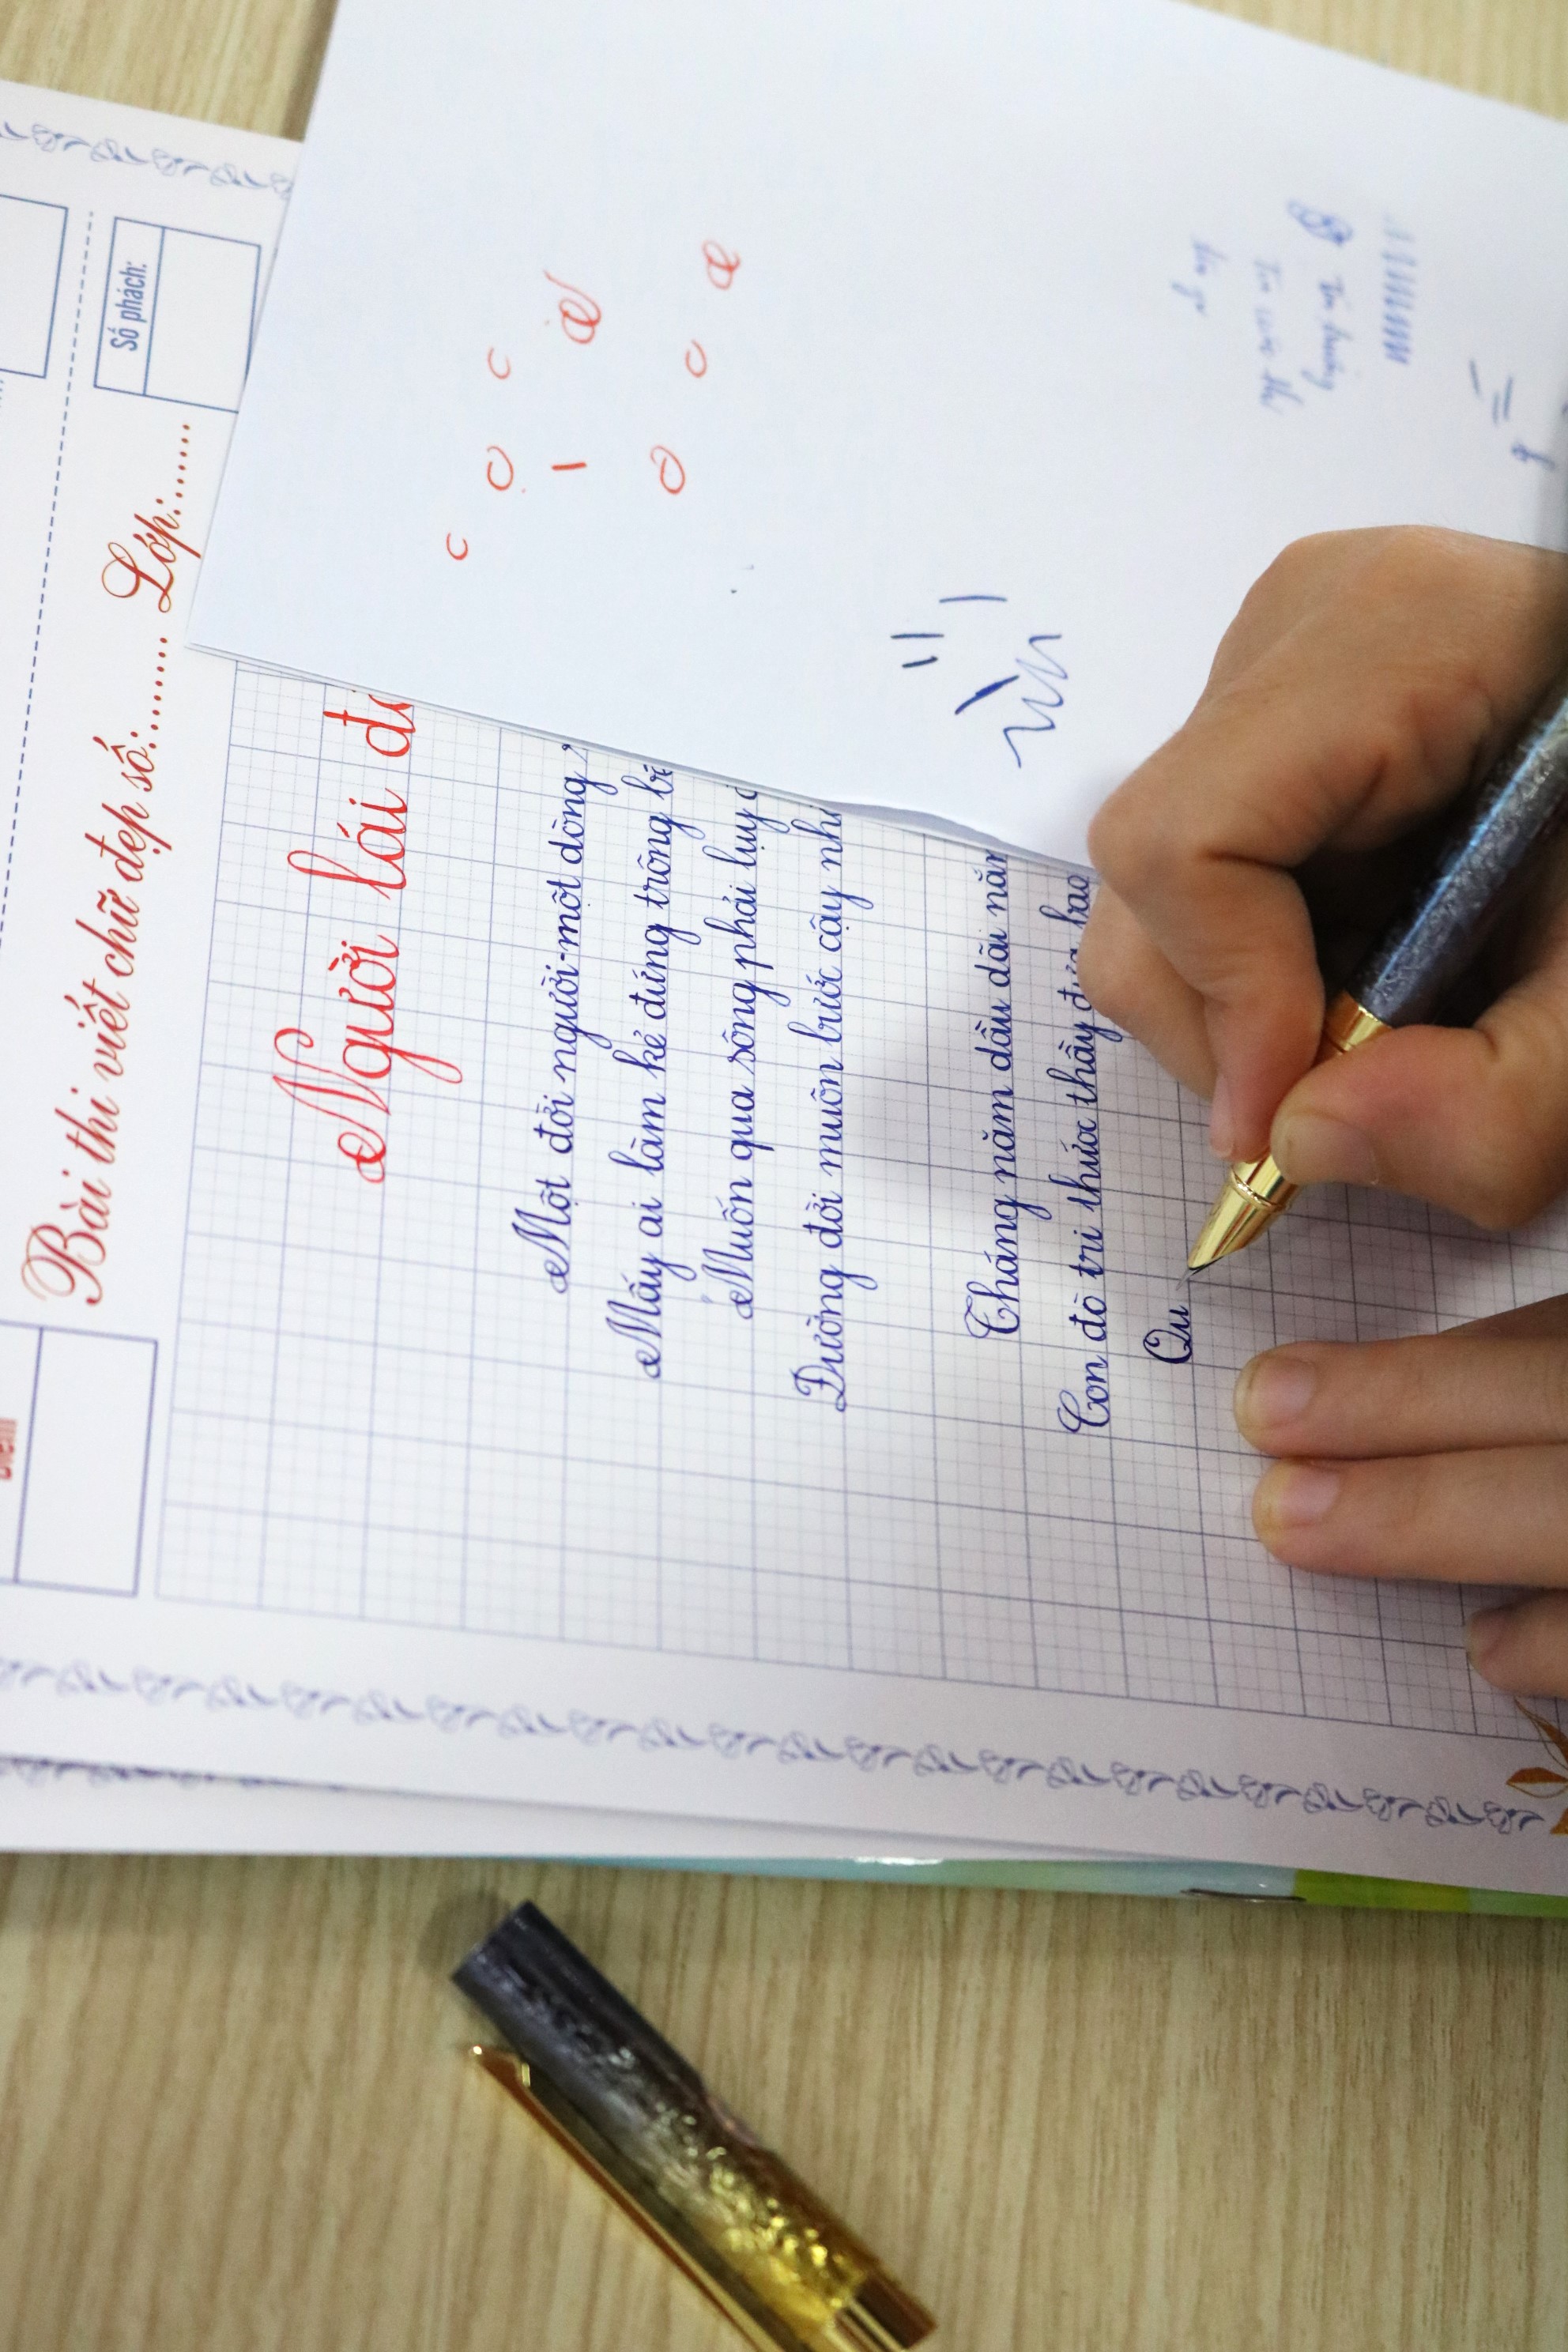 Số phách:
Bài thi viết chữ đẹp số:........ Lớp:......
Người lái
Một đời người-một dòng
Mấy ai làm kẻ đứng trông
Muốn qua sông phải luỵ
Đường đời muôn bước cậy
Tháng năm dầu dãi
Con đò tri thức thầy đưa
Qu